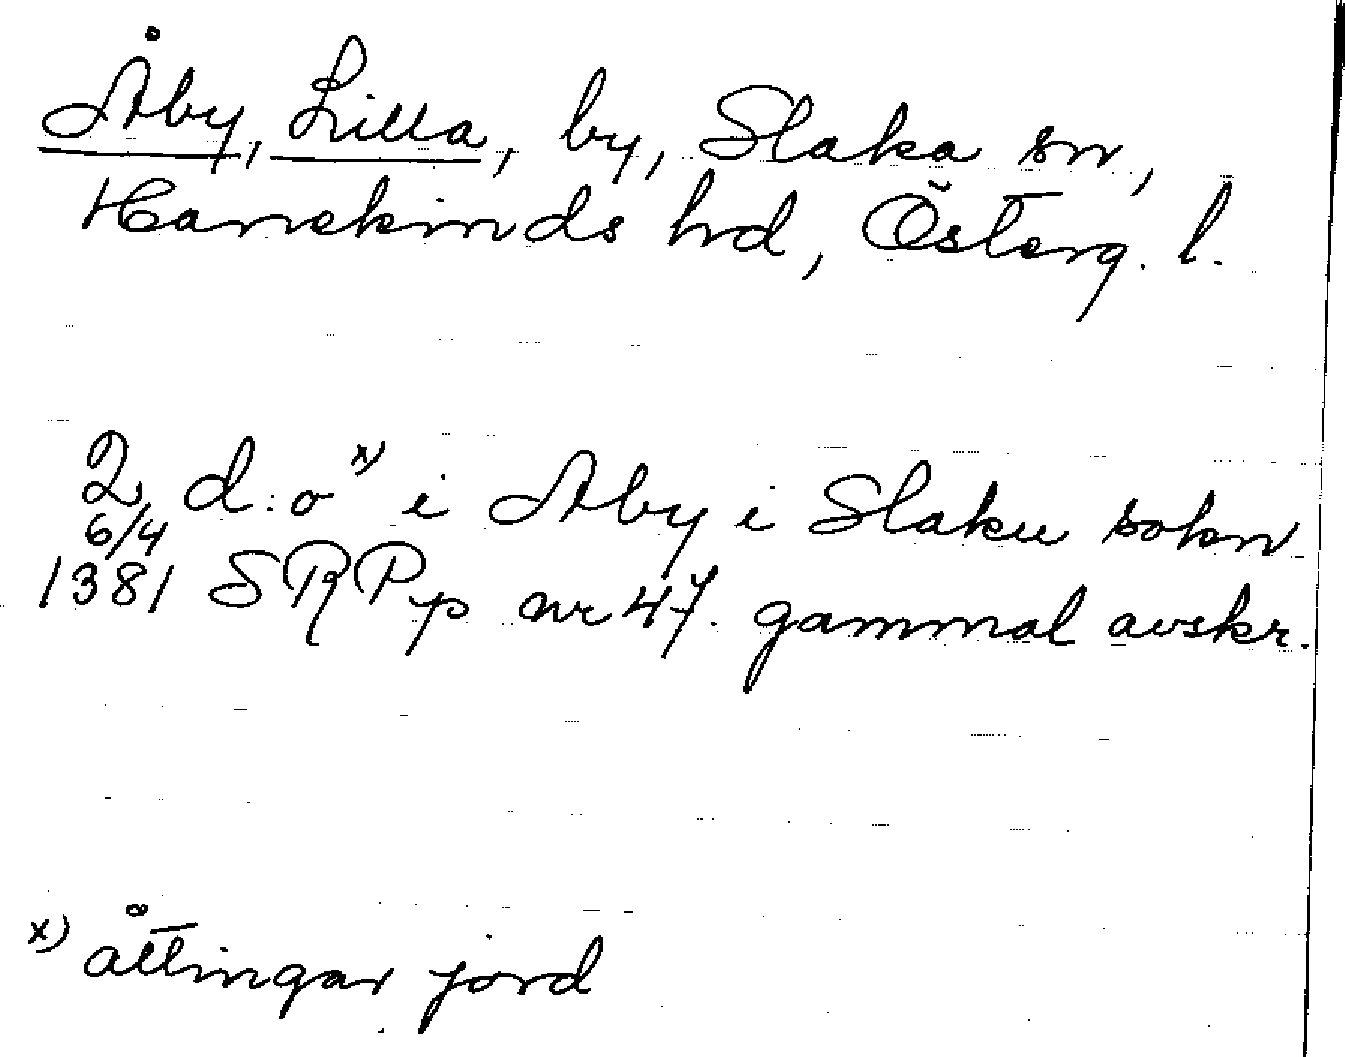 Åby, Lilla, by, Slaka sn,
Hanekinds hd, Österg. l.
2 d:o x) i Aby i Slaku sokn
6/4
1381 SRPp nr 47. gammal avskr.
x) åttingar jord